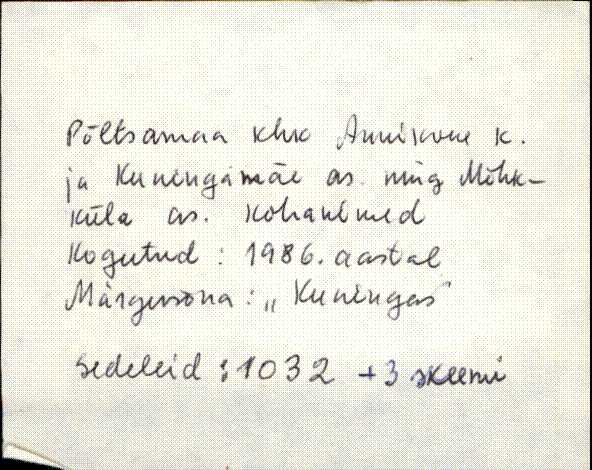 Põltsamaa khk Annikvere k.
ja Kuningamäe as. ning Mõhk-
küla as. kohanimed
Kogutud : 1986. aastal
Märgusõna : „Kuningas"
Sedeleid : 1032 + 3 skeemi